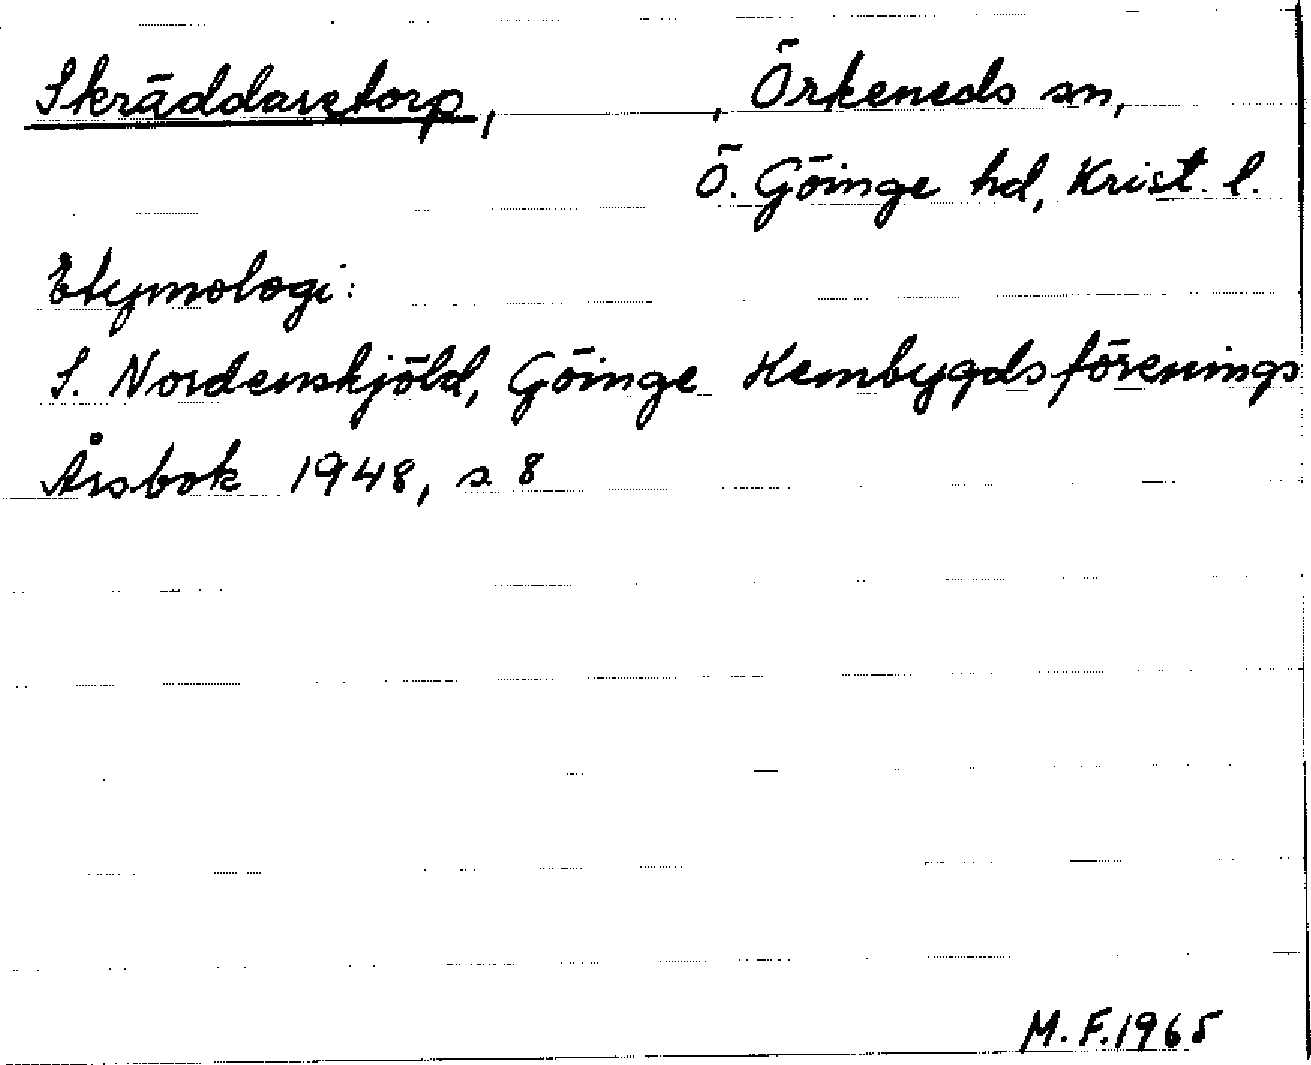 Skräddaretorp, , Örkeneds sn,
Ö. Göinge hd, Krist. l.
Etymologi:
S. Nordenskjöld, Göinge Hembygdsförenings
Årsbok 1948, s 8
M.F.1965